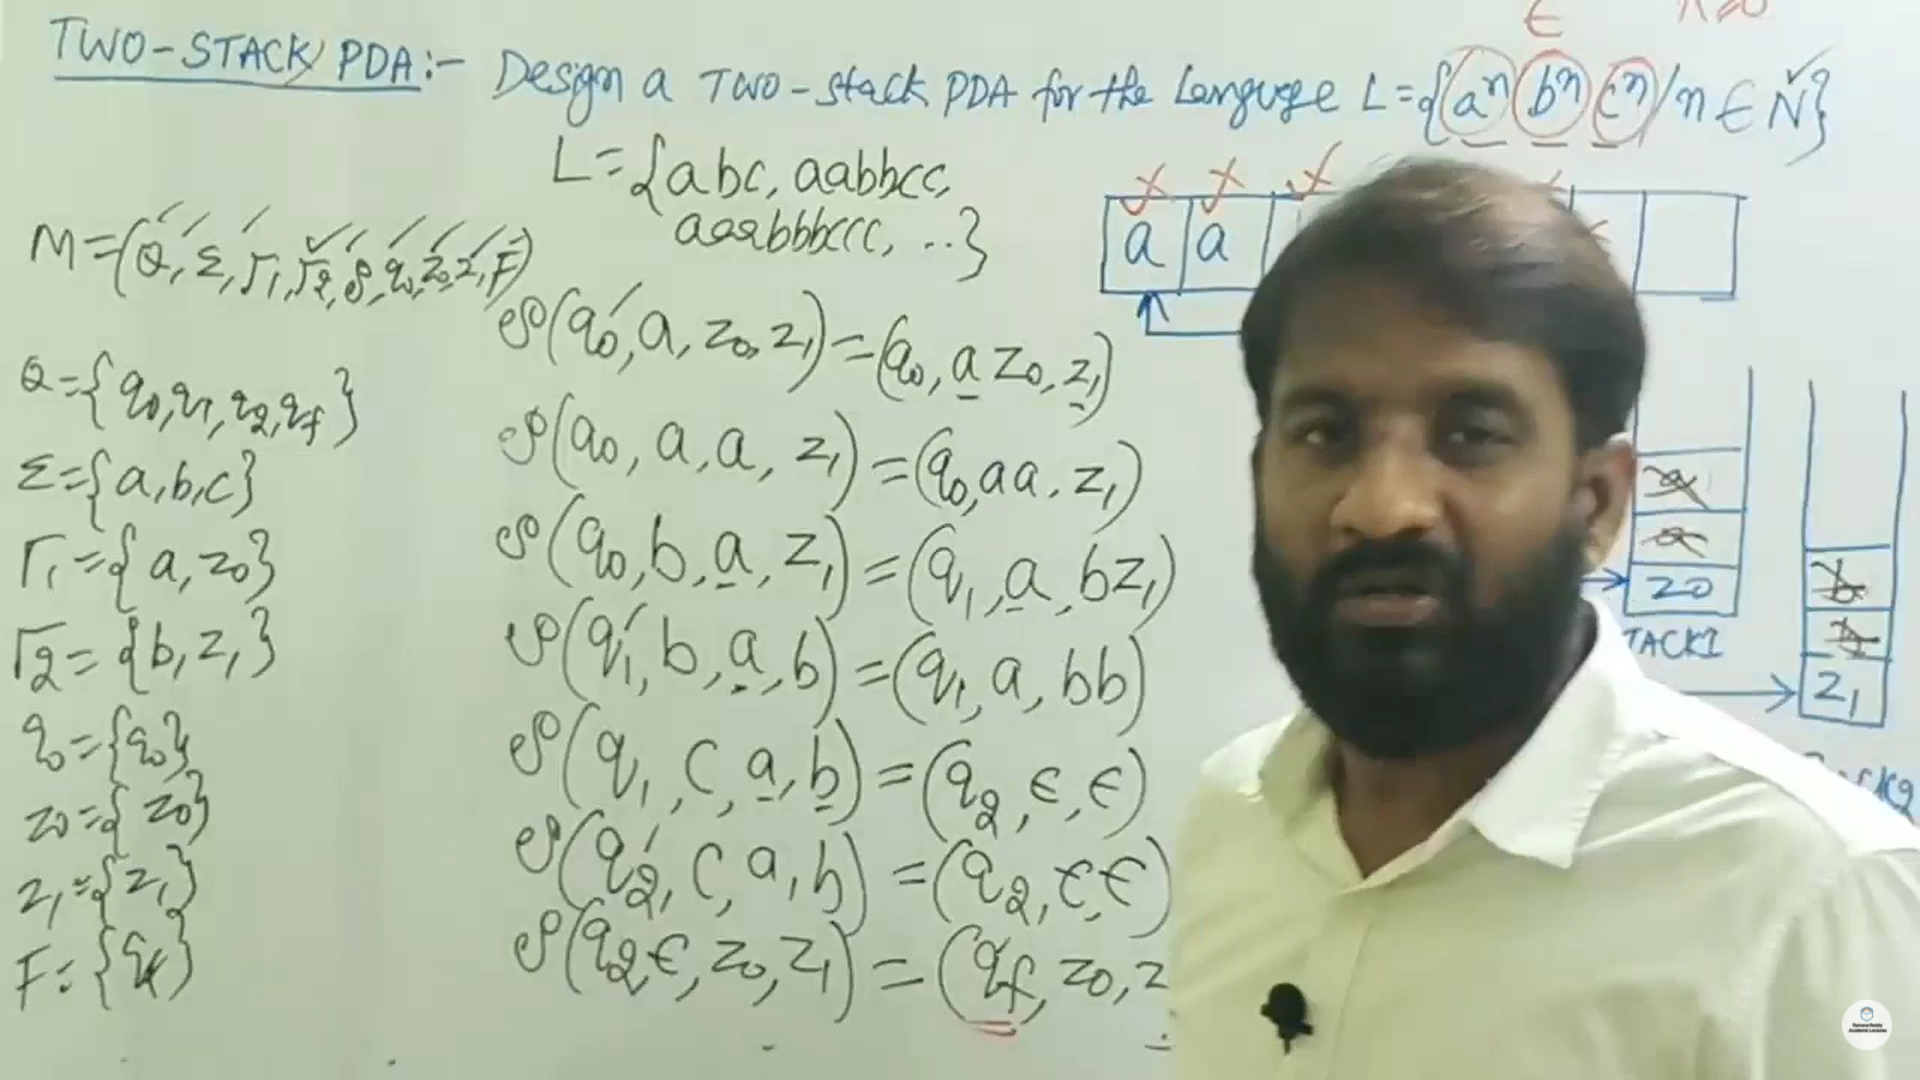 TWO-STACK PDA:- Design a TWO-stack PDA for the Language L={aⁿ bⁿ cⁿ/n ∈ N}
ϵ
L={abc, aabbcc,
aaabbbccc, ...}
M=(Q, Σ, Γ1, Γ2, δ, q0, z0, z1, F)
Q={q0, q1, q2, qf}
Σ={a, b, c}
Γ1={a, z0}
Γ2={b, z1}
q0={q0}
z0={z0}
z1={z1}
F={qf}
δ(q0, a, z0, z1)=(q0, a z0, z1)
δ(q0, a, a, z1)=(q0, aa, z1)
δ(q0, b, a, z1)=(q1, a, bz1)
δ(q1, b, a, b)=(q1, a, bb)
δ(q1, c, a, b)=(q2, ϵ, ϵ)
δ(q2, c, a, b)=(q2, ϵ, ϵ)
δ(q2, ϵ, z0, z1)=(qf, z0, z
a a
a
a
z0
TACK1
b
b
z1
Ramana Reddy
Academic Lectures